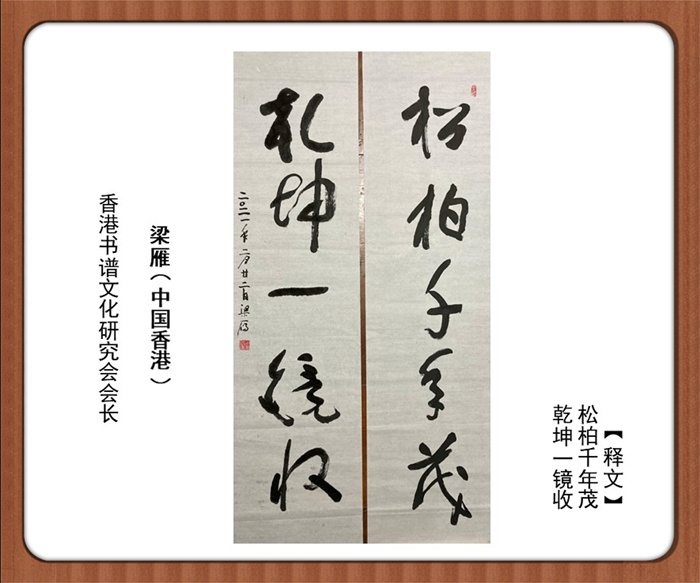 【释文】
松柏千年茂
乾坤一镜收
松柏千年茂
乾坤一镜收
二〇二一年二月廿二日梁雁
梁雁（中国香港）
香港书谱文化研究会会长